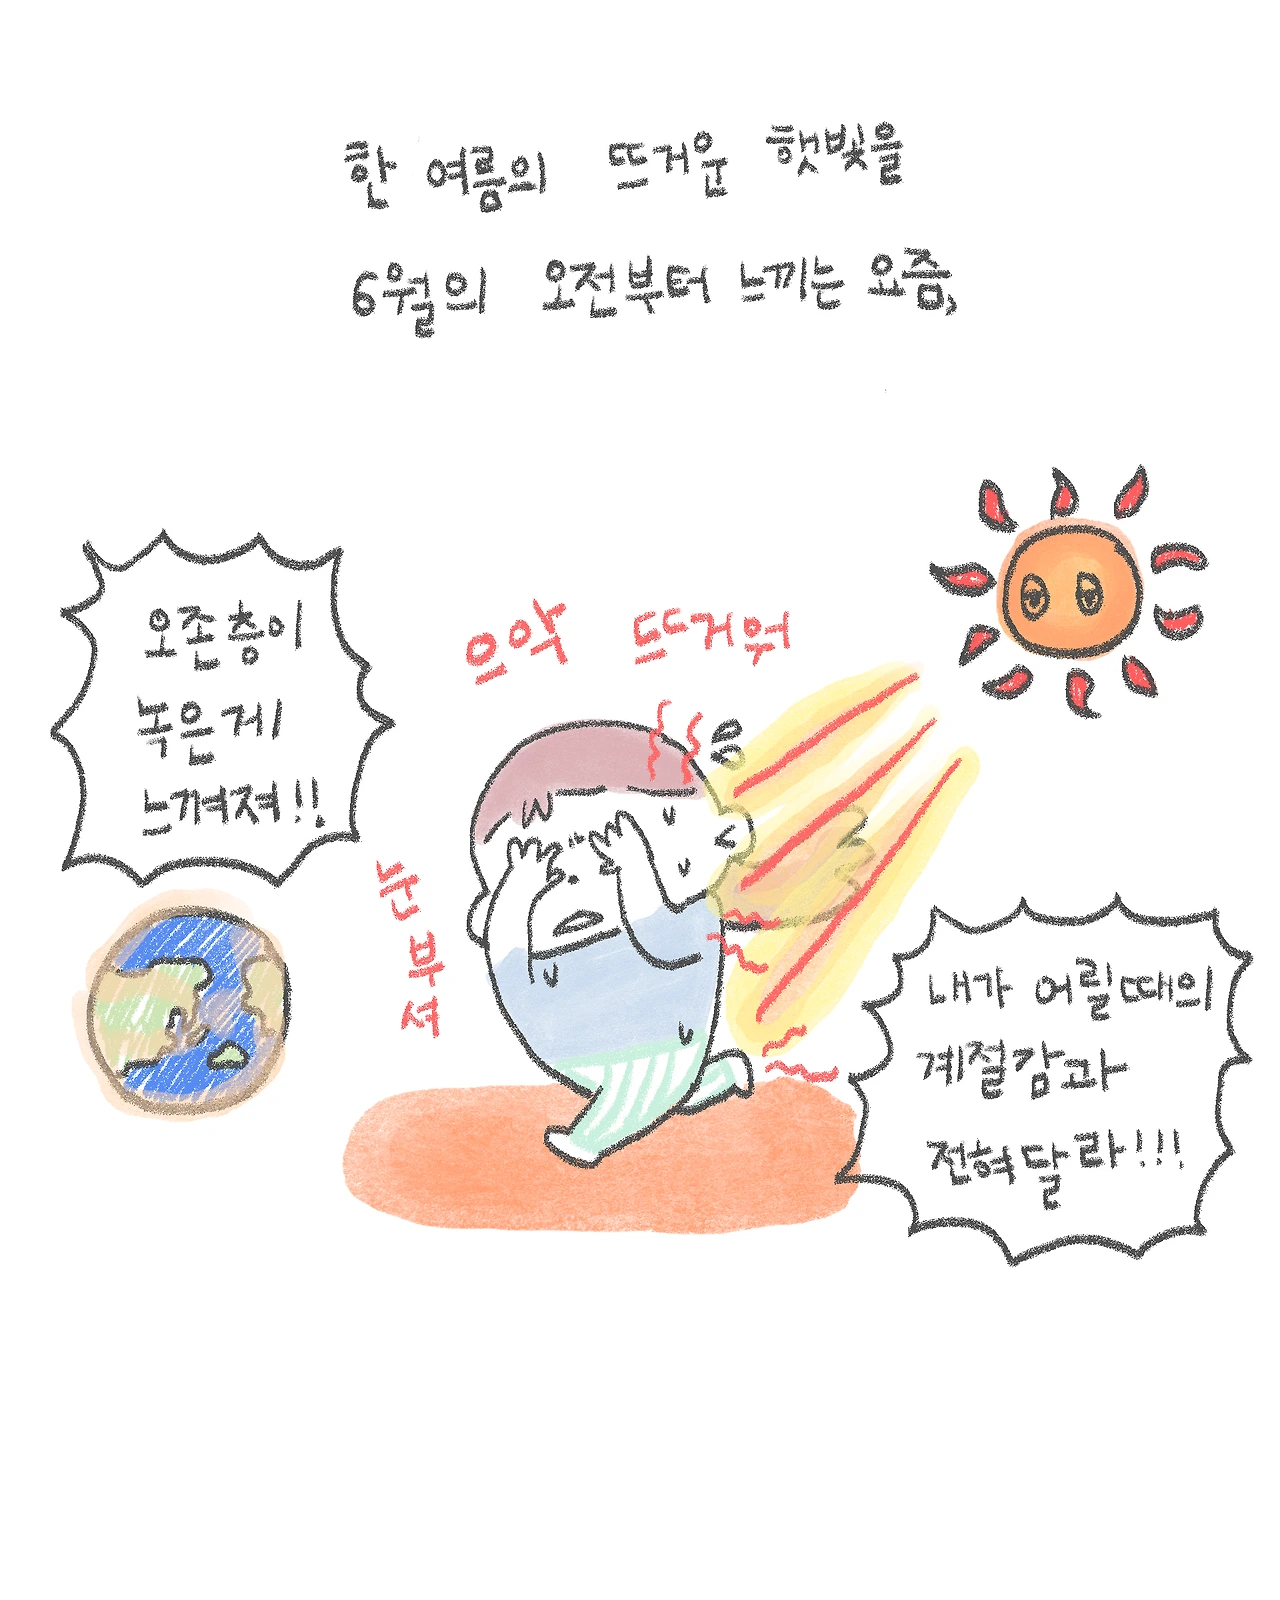 한 여름의 뜨거운 햇빛을
6월의 오전부터 느끼는 요즘,
오존층이
녹은게
느껴져!!
으악 뜨거워
눈부셔
내가 어릴때의
계절감과
전혀달라!!!